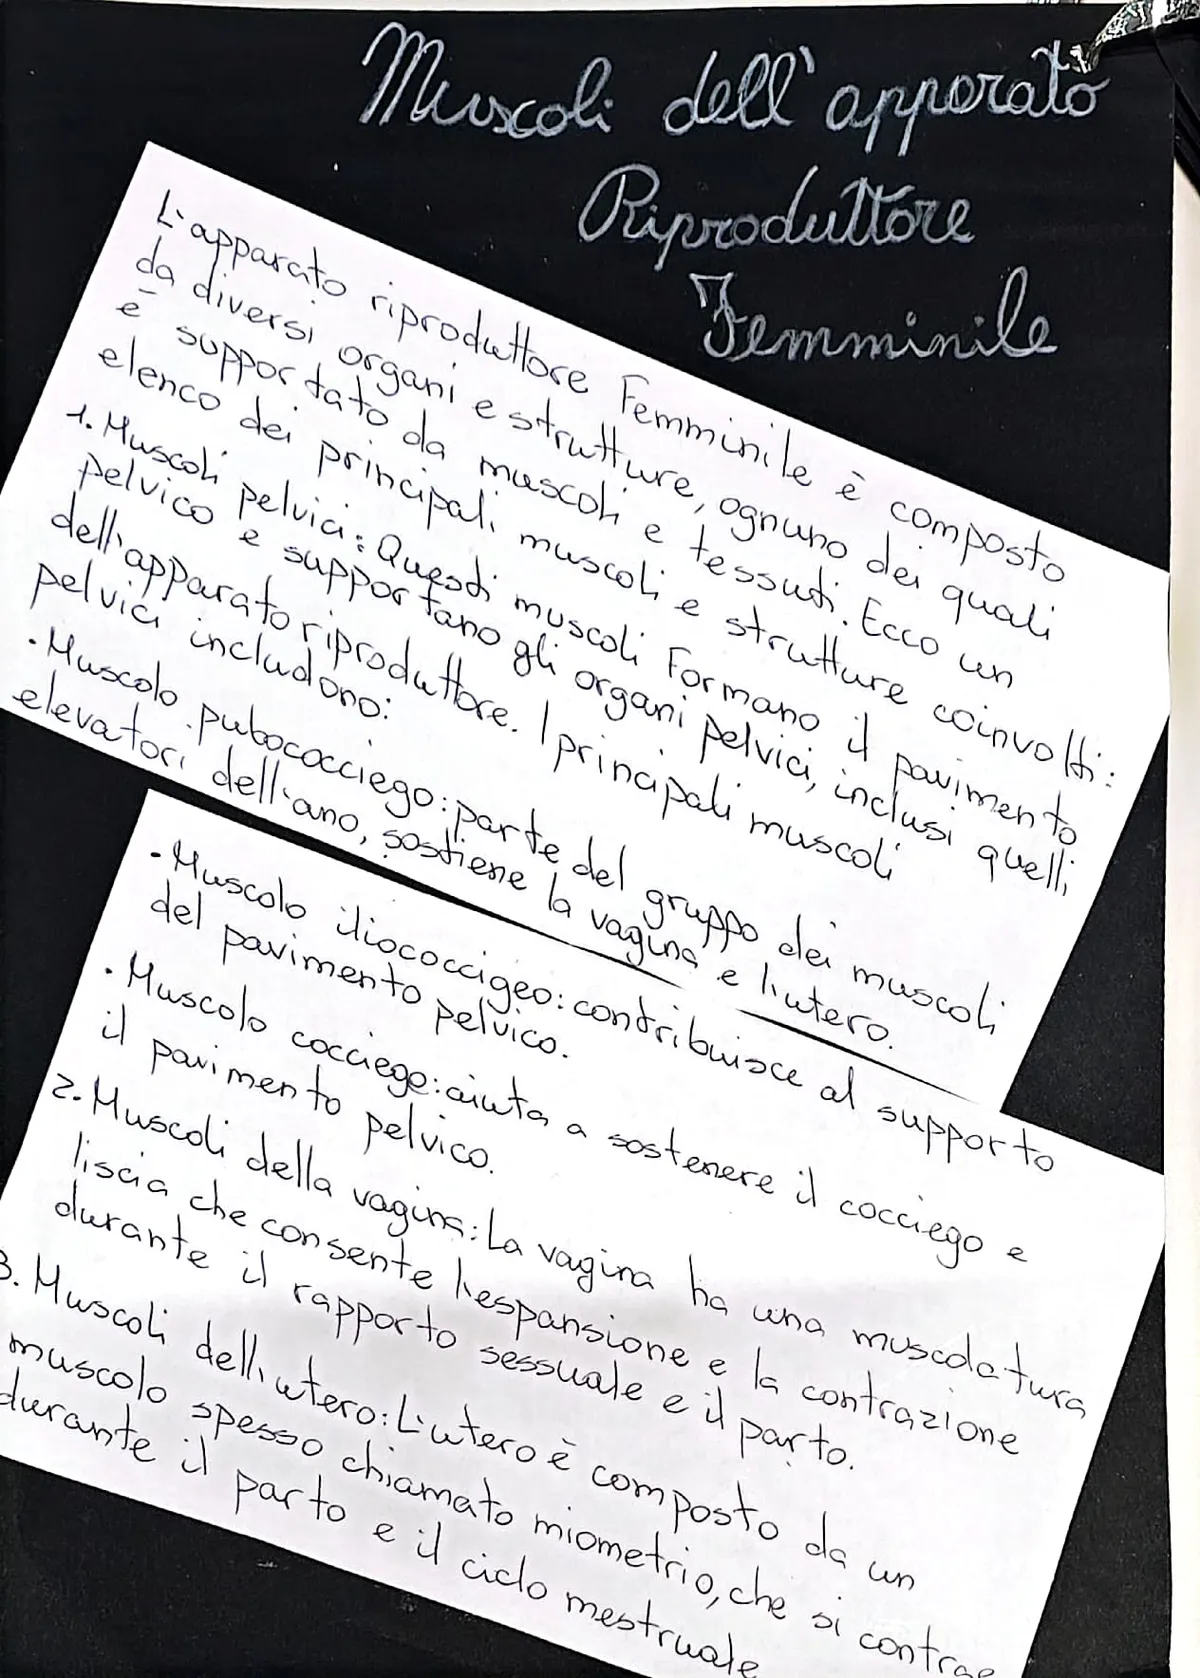 Muscoli dell'apparato
Riproduttore
Femminile
L'apparato riproduttore Femminile è composto
da diversi organi e strutture, ognuno dei quali
è supportato da muscoli e tessuti. Ecco un
elenco dei principali muscoli e strutture coinvolti:
1. Muscoli pelvici: Questi muscoli Formano il pavimento
pelvico e supportano gli organi pelvici, inclusi quelli
dell'apparato riproduttore. I principali muscoli
pelvici includono:
• Muscolo pubococciego: parte del gruppo dei muscoli
elevatori dell'ano, sostiene la vagina e l'utero.
• Muscolo iliococcigeo: contribuisce al supporto
del pavimento pelvico.
• Muscolo cocciego: aiuta a sostenere il cocciego e
il pavimento pelvico.
2. Muscoli della vagina: La vagina ha una muscolatura
liscia che consente l'espansione e la contrazione
durante il rapporto sessuale e il parto.
3. Muscoli dell'utero: L'utero è composto da un
muscolo spesso chiamato miometrio, che si contrae
durante il parto e il ciclo mestruale